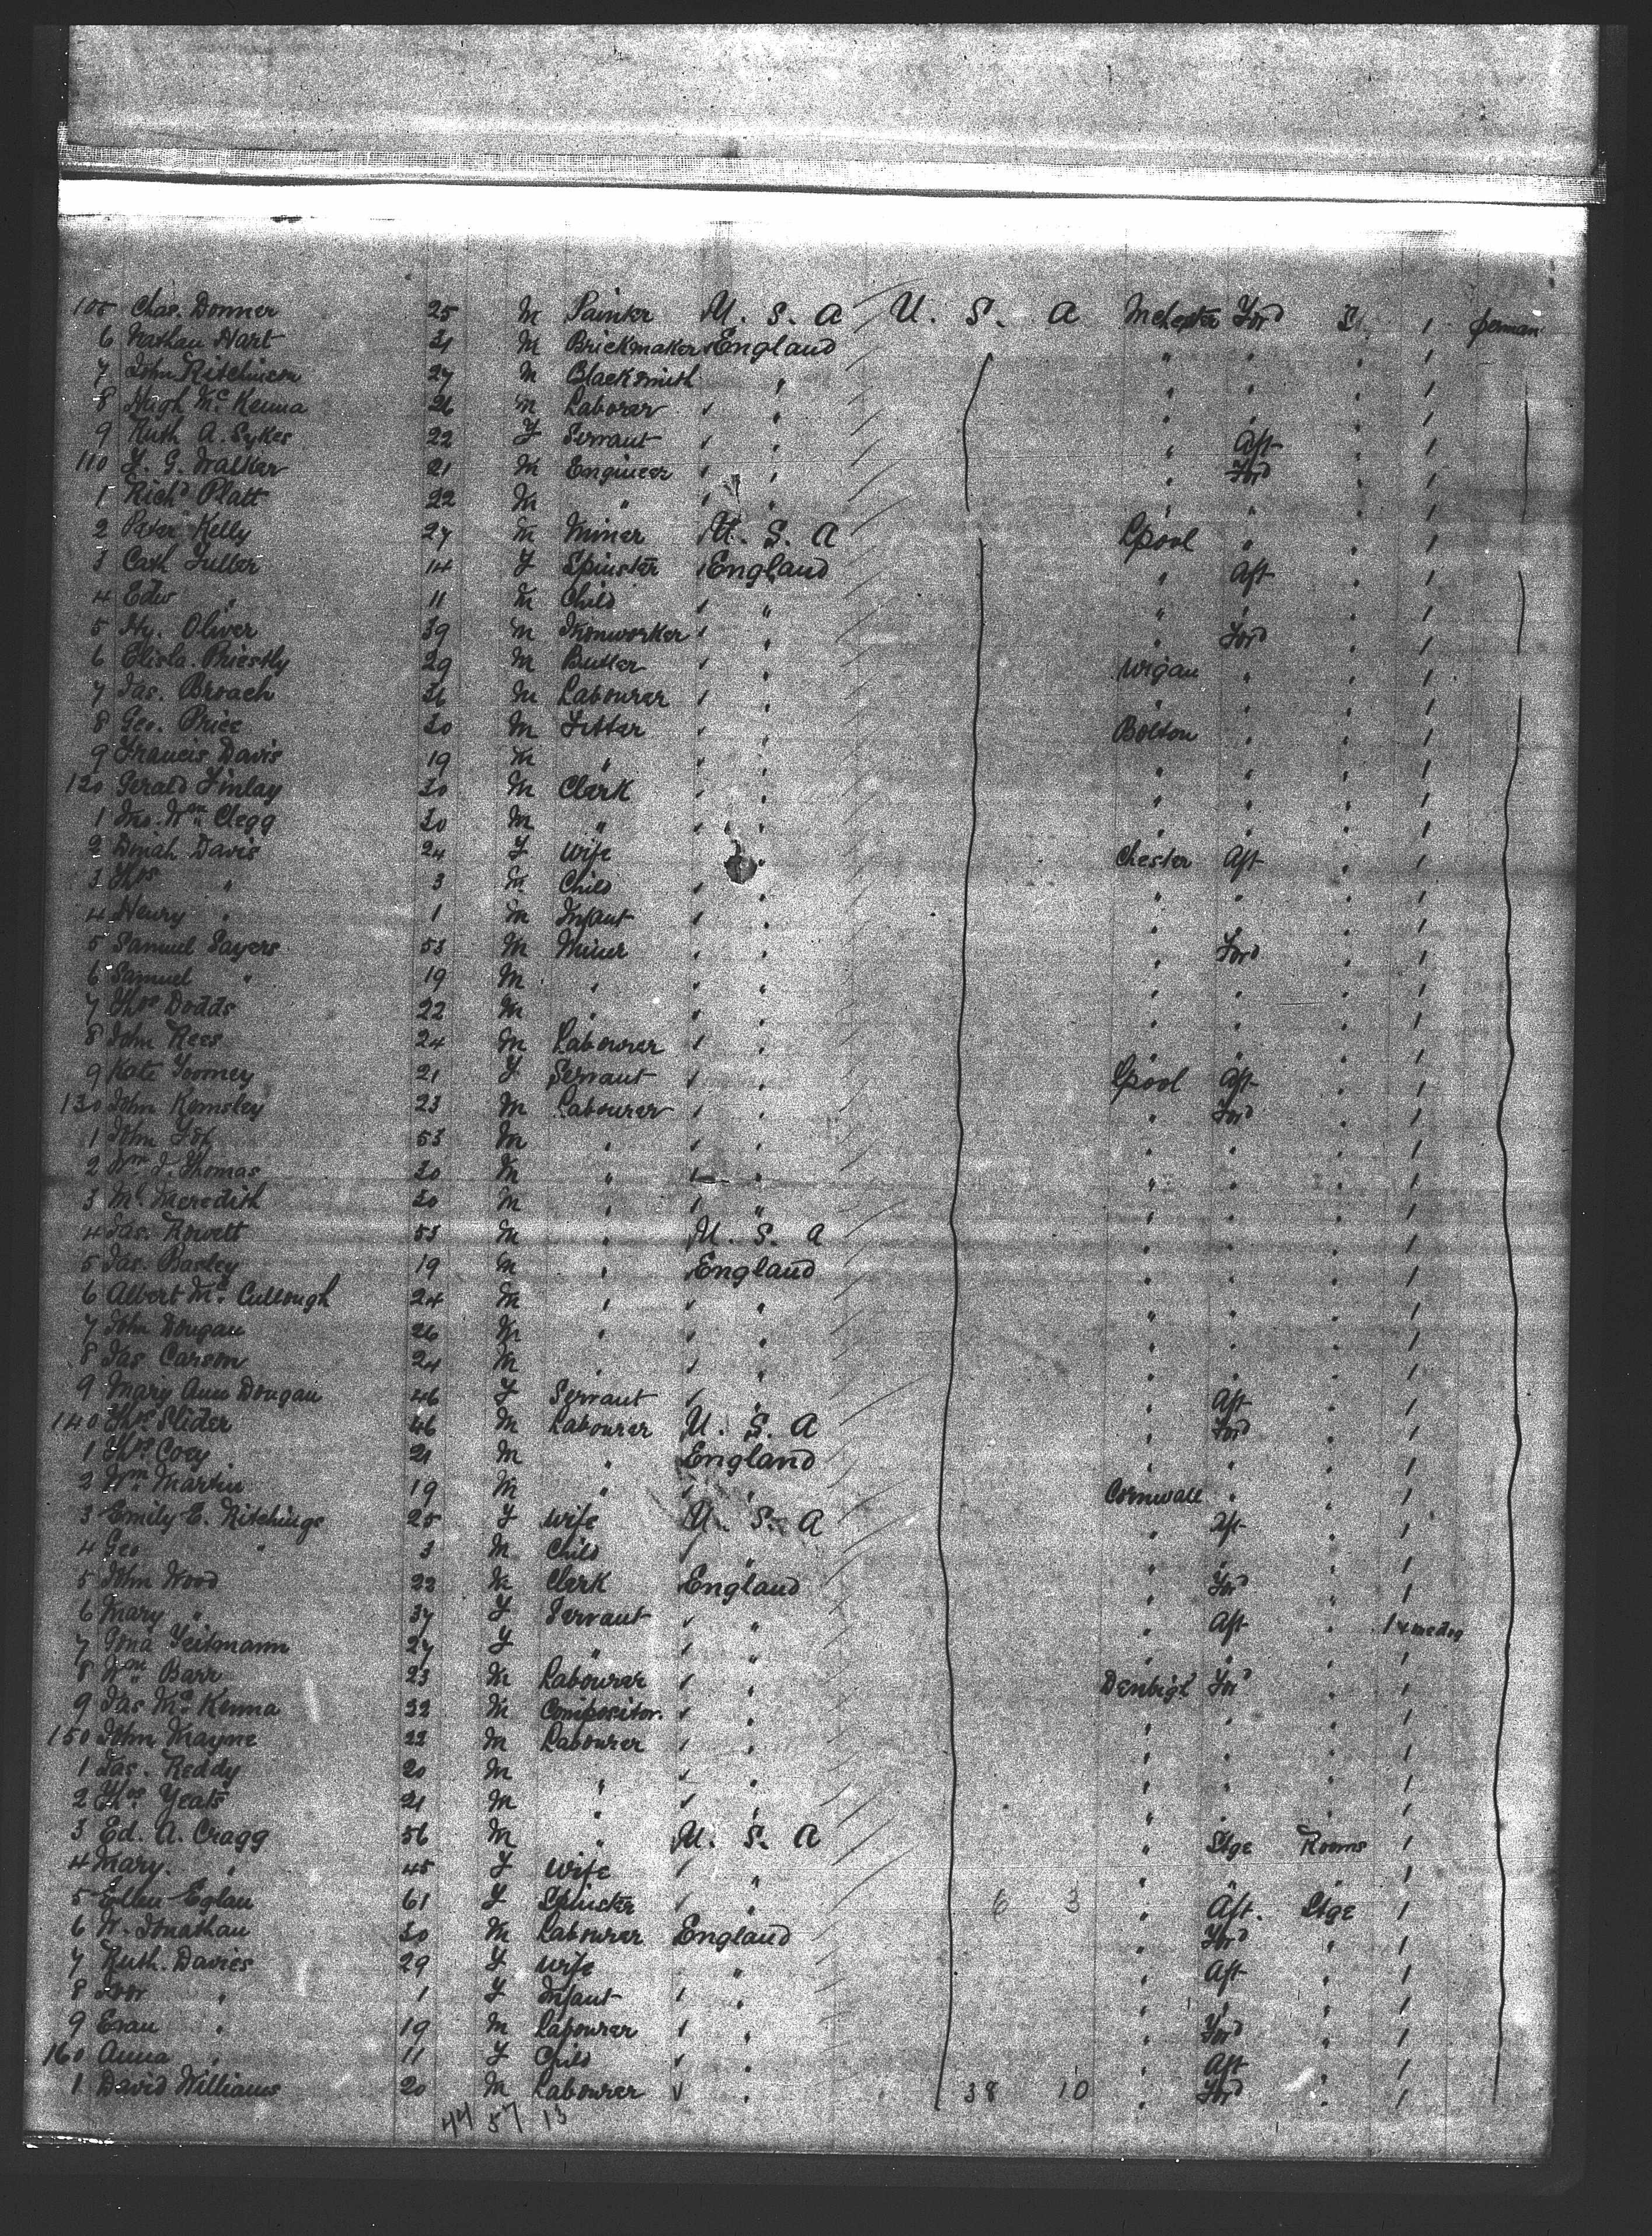 105 Chas. Donner 25 M Painter U. S. A U. S. A Mchester Ford St. 1 perman
6 Nathan Hart 31 M Brickmaker England " " " 1
7 John Ritchinson 27 M Blacksmith " " " " 1
8 Hugh McKenna 26 M Laborer " " " " 1
9 Ruth A. Sykes 22 F Servant " " Aft " 1
110 F. G. Walker 21 M Engineer " " Ford " 1
1 Richd Platt 22 M " " " " " 1
2 Peter Kelly 27 M Miner U. S. A Lpool " " 1
3 Cath Fuller 14 F Spinster England " Aft " 1
4 Edw " 11 M Child " " " " 1
5 Hy. Oliver 39 M Ironworker " " Ford " 1
6 Elisha Priestly 29 M Butler " Wigan " " 1
7 Jas. Broach 36 M Labourer " " " " 1
8 Geo. Price 30 M Fitter " Bolton " " 1
9 Francis Davis 19 M " " " " " 1
120 Gerald Finlay 30 M Clerk " " " " 1
1 Jno. Wm Clegg 30 M " " " " " 1
2 Dinah Davis 24 F Wife " Chester Aft " 1
3 Thos " 3 M Child " " " " 1
4 Henry " 1 M Infant " " " " 1
5 Samuel Sayers 53 M Miner " " Ford " 1
6 Samuel " 19 M " " " " " 1
7 Thos Dodds 22 M " " " " " 1
8 John Rees 24 M Labourer " " " " 1
9 Kate Toomey 21 F Servant " Lpool Aft " 1
130 John Kemsley 23 M Labourer " " Ford " 1
1 John Fox 53 M " " " " " 1
2 Wm J. Thomas 30 M " " " " " 1
3 Ml Meredith 30 M " " " " " 1
4 Jas. Rowett 53 M " U. S. A " " " 1
5 Jas. Basley 19 M " England " " " 1
6 Albert McCullough 24 M " " " " " 1
7 John Dougan 26 M " " " " " 1
8 Jas Carson 24 M " " " " " 1
9 Mary Ann Dougan 46 F Servant " " Aft " 1
140 Thos Slider 46 M Labourer U. S. A " Ford " 1
1 Thos Coey 21 M " England " " " 1
2 Wm Martin 19 M " " Cornwall " " 1
3 Emily E. Kitchings 25 F Wife U. S. A " Aft " 1
4 Geo " 3 M Child " " " " 1
5 John Wood 22 M Clerk England " Ford " 1
6 Mary " 37 F Servant " " Aft " 1
7 Feitmann 27 F " " " " " 1
8 Wm Barr 23 M Labourer " Denbigh Ford " 1
9 Jas McKenna 22 M Compositor " " " " 1
150 John Mayne 22 M Labourer " " " " 1
1 Jas. Reddy 20 M " " " " " 1
2 Thos Yeats 21 M " " " " " 1
3 Ed. A. Cragg 56 M " U. S. A " Stge Rooms 1
4 Mary. " 45 F Wife " " " " 1
5 Ellen Eglan 61 F Spinster " 6 3 " Aft. Stge 1
6 W. Jonathan 30 M Labourer England " Ford " 1
7 Ruth. Davies 29 F Wife " " Aft " 1
8 " 1 F Infant " " " " 1
9 Evan " 19 M Labourer " " Ford " 1
160 Anna " 11 F Child " " Aft " 1
1 David Williams 20 M Labourer " 38 10 " Ford " 1
44 57 13